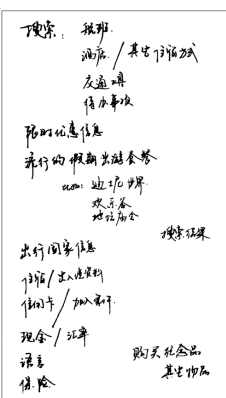 搜索: 航班.
酒店. / 其它住宿方式
交通工具
待办事项
限时优惠信息
流行的假期出游套餐
比如: 迪士尼世界.
欢乐谷
搜索结果
出行国家信息
住宿/出入境资料
信用卡 /
现金/汇率
语言
保险
购买纪念品
其它物品